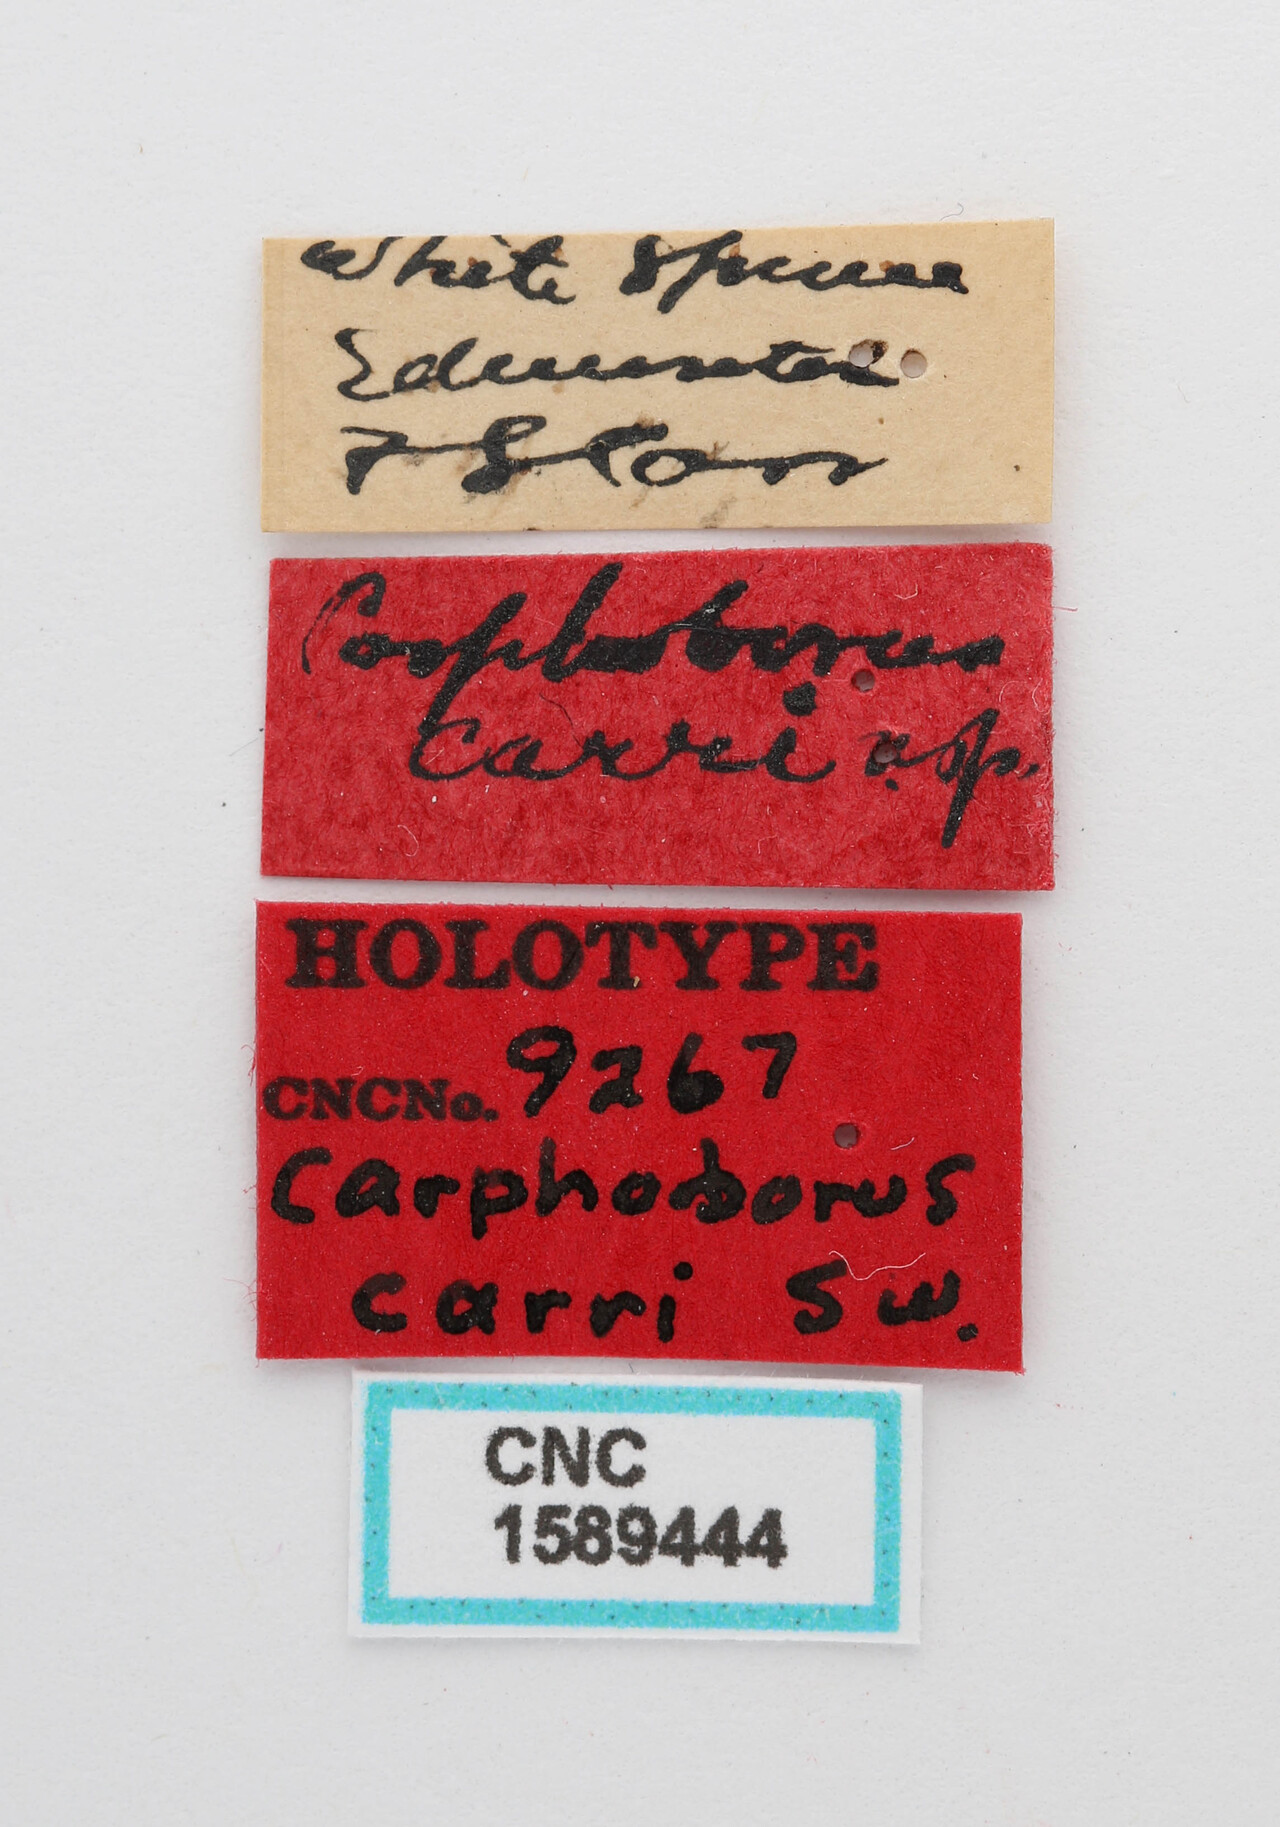 White Spruce
Edmonton
F S Carr
Carphoborus
carri n.sp.
HOLOTYPE
9267
CNCNo.
Carphoborus
carri Sw.
CNC
1589444